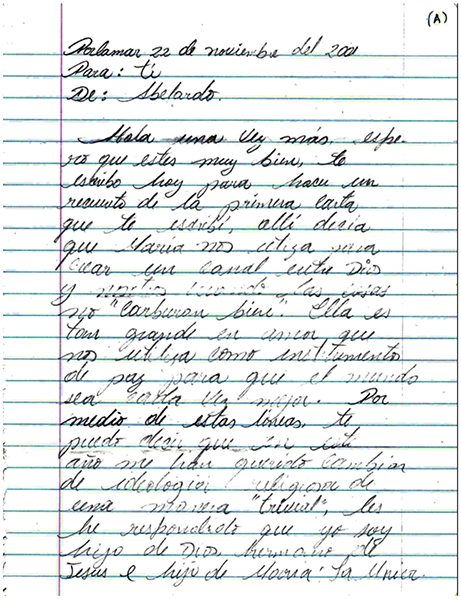 (A)
Porlamar 22 de noviembre del 2001
Para: ti
De: Abelardo.
Hola una vez más, espe-
ro que estes muy bien, te
escribo hoy para hacer un
recuento de la primera carta
que te escribí, allí decía
que Maria nos utiliza para
crear un canal entre Dios
y nosotros cuando las cosas
no "Carburan bien". Ella es
tan grande en amor que
nos utiliza como instrumento
de paz para que el mundo
sea cada vez mejor. Por
medio de estas líneas, te
puedo decir que en este
año me han querido cambiar
de ideología religiosa de
una manera "trivial", les
he respondido que yo soy
hijo de Dios, hermano de
Jesus e hijo de Maria. La Unica.